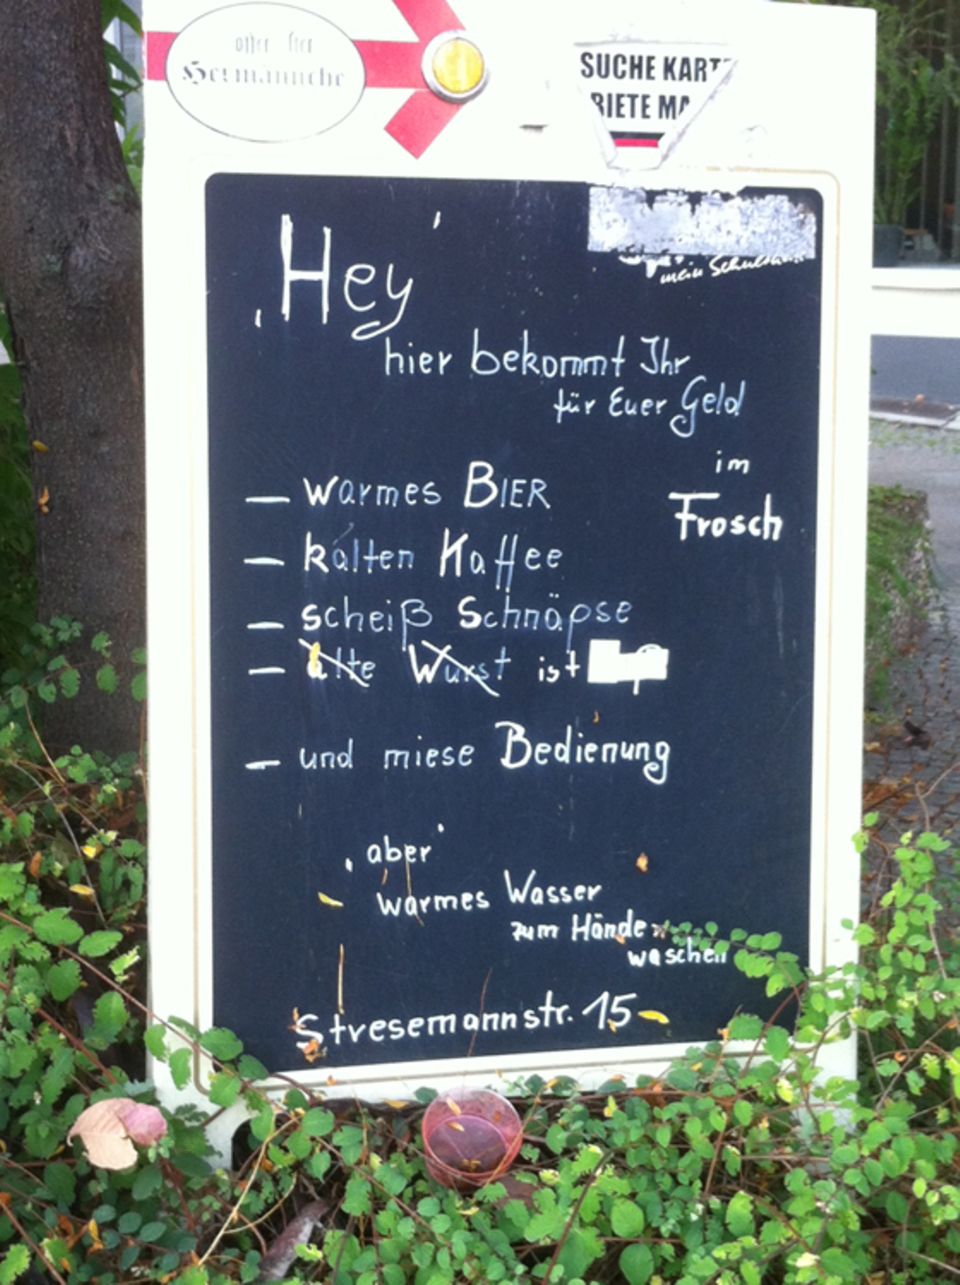 SUCHE KARTE
BIETE MA
mein
Hey
hier bekommt Ihr
für Euer Geld
im
Frosch
— warmes BIER
— kalten Kaffee
— scheiß Schnäpse
— alte Wurst ist
— und miese Bedienung
, aber '
warmes Wasser
zum Hände
waschen
Stresemannstr. 15